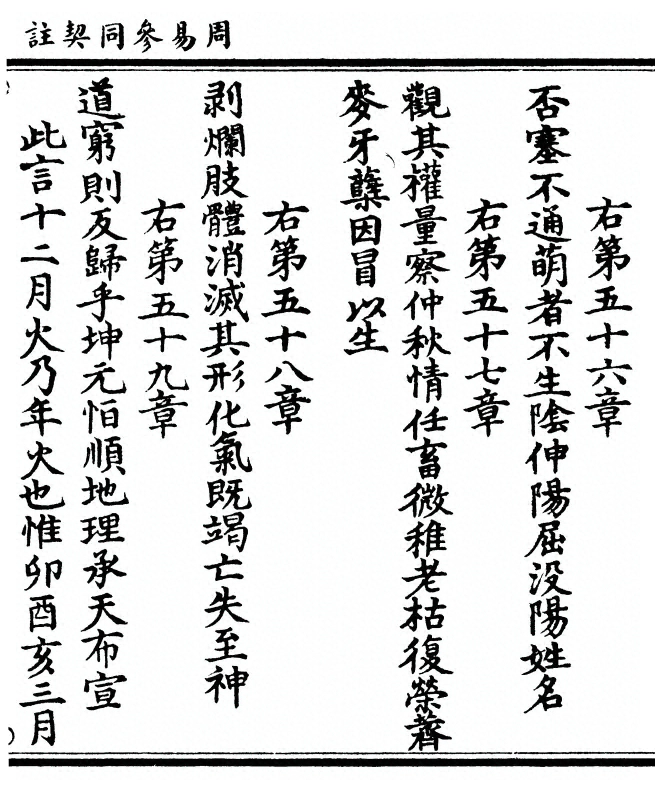 周易參同契註
右第五十六章
否塞不通萌者不生陰伸陽屈没陽姓名
右第五十七章
觀其權量察仲秋情任畜微稚老枯復榮薺
麥牙蘖因冒以生
右第五十八章
剥爛肢體消滅其形化氣既竭亡失至神
右第五十九章
道窮則反歸乎坤元恒順地理承天布宣
此言十二月火乃年火也惟卯酉亥三月